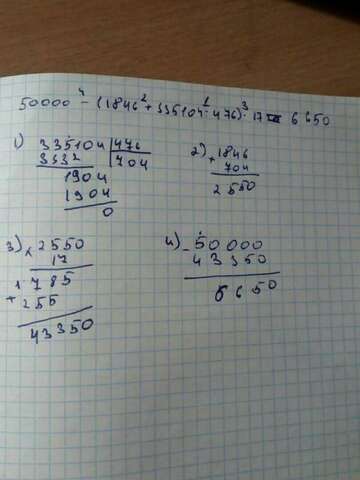 50000 - (1846 + 335104 : 476) · 17 = 6650
4 2 1 3
1) 335104 | 476
3332 704
1904
1904
0
2) + 1846
704
2550
3) x 2550
17
1785
+ 255
43350
4) - 50000
43350
6650